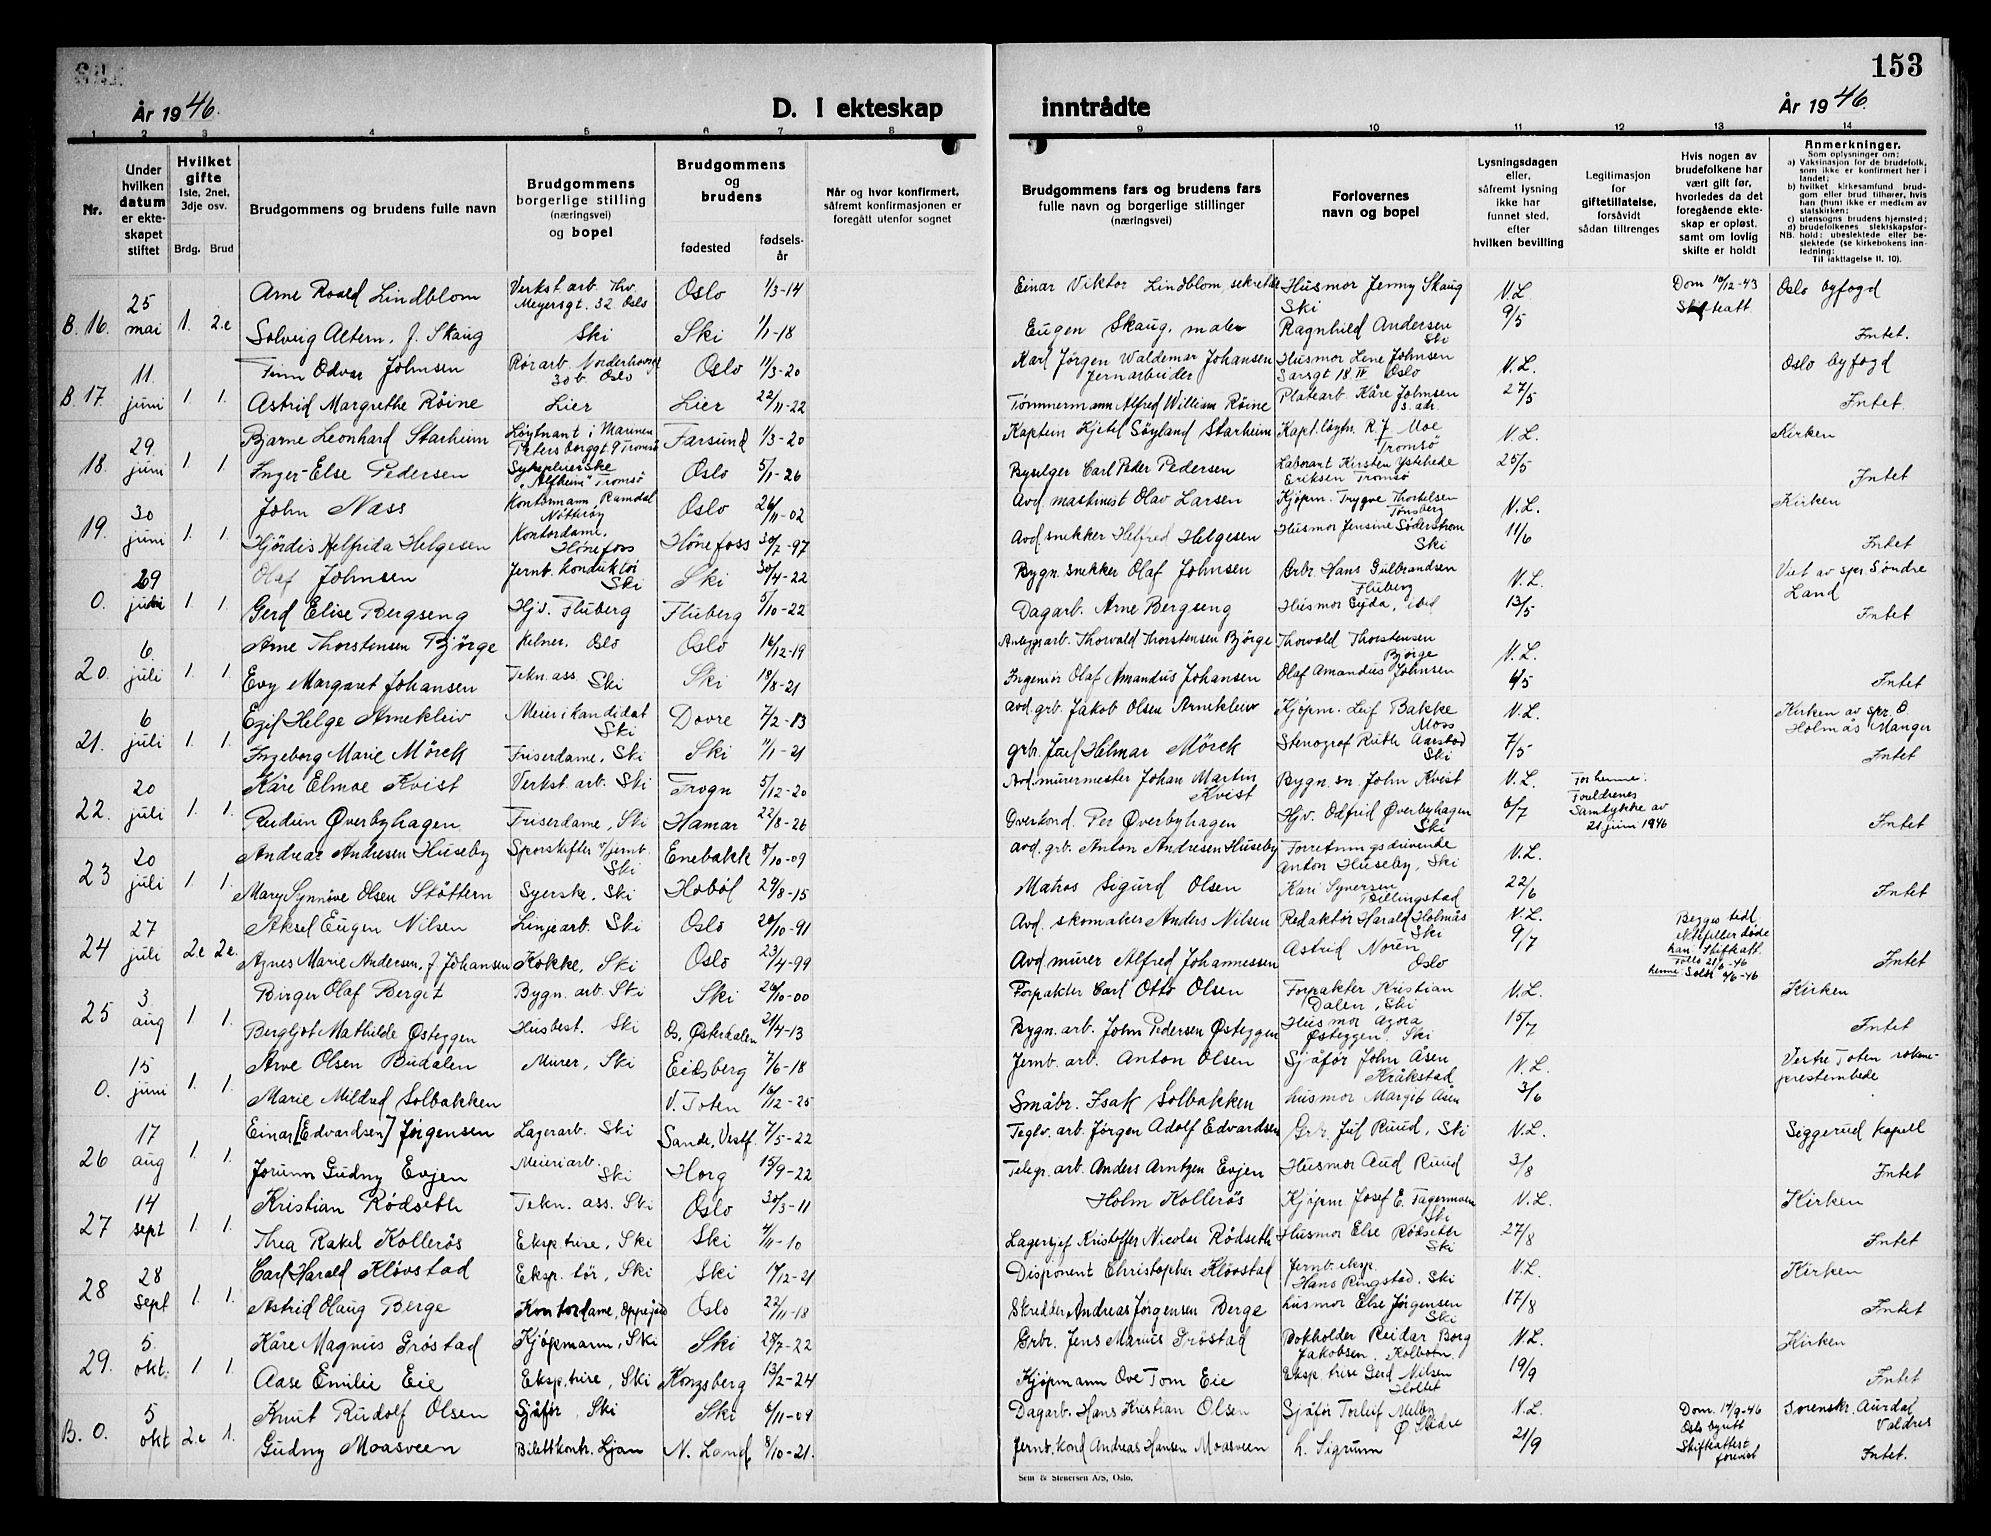 153
År 1946.
D. I ekteskap inntrådte
År 1946.
1 2 3 4 5 6 7 8 9 10 11 12 13 14
Nr.
Under hvilken datum er ekteskapet stiftet
Hvilket gifte 1ste, 2net, 3dje osv.
Brdg. Brud
Brudgommens og brudens fulle navn
Brudgommens borgerlige stilling (næringsvei) og bopel
Brudgommens og brudens
fødested
fødselsår
Når og hvor konfirmert, såfremt konfirmasjonen er foregått utenfor sognet
Brudgommens fars og brudens fars fulle navn og borgerlige stillinger (næringsvei)
Forlovernes navn og bopel
Lysningsdagen eller, såfremt lysning ikke har funnet sted, efter hvilken bevilling
Legitimasjon for giftetillatelse, forsåvidt sådan tiltrenges
Hvis nogen av brudefolkene har vært gift før, hvorledes da det foregående ekteskap er opløst, samt om lovlig skifte er holdt
Anmerkninger.
Som oplysninger om:
a) Vaksinasjon for de brudefolk, som ikke er konfirmert her i landet;
b) hvilket kirkesamfund brudgom eller brud tilhører, hvis han (hun) ikke er medlem av statskirken;
c) utensogns brudens hjemsted;
d) brudefolkenes slektskapsforhold: ubeslektede eller beslektede (se kirkebokens innledning:
NB.
Til iakttagelse II. 10).
B. 16. 25 mai 1. 2.e
Arne Roald Lindblom Verkst. arb. Thv. Meyersgt. 32 Oslo Oslo 1/3-14 Einar Viktor Lindblom, sekretær Husmor Jenny Skaug Ski V.L. 9/5 Dom 10/12-43 Skifteatt. Oslo byfogd
Solveig Altern, f. Skaug Ski Ski 1/1-18 Eugen Skaug, maler Ragnhild Andersen Ski Intet.
B. 17. 11. juni 1. 1.
Finn Odvar Johnsen Rørarb. 30 b Oslo Oslo 11/3-20 Karl Jørgen Waldemar Johansen Jernarbeider Husmor Lene Johnsen Sarsgt 18 IV Oslo V.L. 27/5 Oslo byfogd
Astrid Margrethe Röine Lier Lier 22/11-22 Tømmermann Alfred William Röine Platearb. Kåre Johnsen s. adr. Intet.
18. 29. juni 1. 1.
Bjarne Leonhard Starheim Løytnant i Marinen Petersborggt 9 Tromsø Farsund 1/3-20 Kaptein Kjetil Söyland Starheim Kapt. løytn. R. J. Moe Tromsö V.L. 25/5 Kirken
Inger-Else Pedersen Sykepleierske "Alfheim" Tromsö Oslo 5/1-26 Byselger Carl Peder Pedersen Laborant Kirsten Eriksen Tromsö Intet
19. 30 juni 1. 1.
John Næss Kontormann Ramdal Nötteröy Oslo 26/11-02 Avd. maskinist Olav Larsen Kjöpm. Trygve Thorkelsen Tönsberg V.L. 11/6 Kirken
Hjördis Helfrida Helgesen Kontordame, Hönefoss Hönefoss 30/7-97 Avd. snekker Helfred Helgesen Husmor Jensine Söderstrom Ski Intet
0. 29 juni 1. 1.
Olaf Johnsen Jernb. konduktör Ski Ski 30/4-22 Bygn. snekker Olaf Johnsen Grbr. Hans Gulbrandsen Fluberg V.L. 13/5 Viet av spr. Söndre Land
Gerd Elise Bergseng Hjv. Fluberg Fluberg 5/10-22 Dagarb. Arne Bergseng Husmor Eyda, ibid Intet
20. 6. juli 1. 1.
Arne Thorstensen Björge Kelner. Oslo Oslo 16/12-19 Anleggsarb. Thorvald Thorstensen Björge Thorvald Thorstensen Björge V.L. 6/5
Evy Margaret Johansen Tekn. ass. Ski Ski 18/8-21 Ingeniör Olaf Amandus Johansen Olaf Amandus Johnsen Intet
21. 6 juli 1. 1.
Egil Helge Arnekleiv Meierikandidat Ski Dovre 7/2-13 Avd. grb. Jakob Olsen Arnekleiv Kjöpm. Leif Bakke Moss V.L. 7/5 Kirken av spr. O Holmås Manger
Ingeborg Marie Mörck Friserdame, Ski Ski 1/1-21 grb. Juel Helmar Mörck Stenograf Ruth Aarstad Ski Intet
22. 20 juli 1. 1.
Kåre Elmoe Kvist Verkst. arb. Ski Frogn 5/12-20 Avd. murermester Johan Martin Kvist Bygn. sn. John Kvist V.L. 6/7 For henne: Foreldrenes Samtykke av 21 juni 1946
Reidun Øverbyhagen Friserdame, Ski Hamar 22/8-26 Overkond. Per Øverbyhagen Hjv. Odfrid Øverbyhagen Ski Intet
23 20 juli 1. 1.
Andreas Andresen Huseby Sporskifter v/jernb. Ski Enebakk 8/10-09 Avd. grb. Anton Andresen Huseby Forretningsdrivende Anton Huseby, Ski V.L. 22/6
Mary Synnöve Olsen Stöttern Syerske, Ski Hobøl 29/8-15 Matros Sigurd Olsen Kari Syversen Billingstad Intet
24 27 juli 2e 2e.
Aksel Eugen Nilsen Linjearb. Ski Oslo 20/10-91 Avd. skomaker Anders Nilsen Redaktør Harald Holmås Ski V.L. 9/7 Begges tidl ektefeller døde han: Skifteatt. Follo 21/6-46 henne: Solör 4/6-46
Agnes Marie Andersen, f. Johansen Kokke, Ski Oslo 23/4-99 Avd murer Alfred Johannessen Astrid Norén Oslo Intet
25 3. aug 1. 1.
Birger Olaf Bergit Bygn. arb. Ski Ski 26/10-00 Forpakter Carl Otto Olsen Forpakter Kristian Dalen, Ski V.L. 15/7 Kirken
Bergljot Mathilde Østeggen Husbest. Ski Os, Østerdalen 21/4-13 Bygn. arb. John Pedersen Østeggen Husmor Agora Østeggen. Ski Intet
0. 15 juni 1. 1.
Arve Olsen Budalen Murer, Ski Eidsberg 7/6-18 Jernb. arb. Anton Olsen Sjåfør John Åsen Kråkstad V.L. 3/6 Vestre Toten sokneprestembede
Marie Mildred Solbakken V. Toten 16/12-25 Småbr. Isak Solbakken husmor Margit Åsen
26 17 aug 1. 1.
Einar [Edvardsen] Jørgensen Lagerarb. Ski Sande, Vestf. 7/5-22 Teglv. arb. Jörgen Adolf Edvardsen Grbr. Juel Ruud, Ski V.L. 3/8 Siggerud kapell
Jorunn Gudny Evjen Meieriarb. Ski Horg 15/9-22 Telegr. arb. Anders Arntzen Evjen Husmor Aud Ruud Intet
27 14 sept 1. 1.
Kristian Rödseth Tekn. ass. Ski Oslo 30/3-11 Holm Kollerös Kjöpm. Josef E. Fagermoen Ski V.L. 27/8 Kirken
Thea Rakel Kollerös Eksp.trise, Ski Ski 4/11-10 Lagersjef Kristoffer Nicolai Rödseth Husmor Else Rödseth Ski Intet
28 28 sept 1. 1.
Carl Harald Klövstad Eksp. tör, Ski Ski 14/12-21 Disponent Christopher Klövstad Jernb. eksp. Hans Ringstad, Ski V.L. 17/8 Kirken
Astrid Olaug Berge Kontordame, Oppegård Oslo 22/11-18 Skredder Andreas Jørgensen Berge husmor Else Jørgensen Ski Intet
29. 5. okt. 1. 1.
Kåre Magnus Gröstad Kjöpmann, Ski Ski 28/7-22 Grbr. Jens Marius Gröstad Bokholder Reidar Borg Jakobsen, Kolbotn. V.L. 19/9 Kirken
Aase Emilie Eie Eksp.trise, Ski Kongsberg 13/2-24 Kjöpmann Ove Tom Eie Eksp.trise Gerd Nilsen Intet
B. 0. 5 okt 2.e 1.
Knut Rudolf Olsen Sjåfør, Ski Ski 6/11-09 Dagarb. Hans Kristian Olsen Sjåfør Torleif Melby Ø Slidre V.L. 21/9 Dom. 14/9-46 Oslo byrett Skifteattest forevist Sorenskr. Aurdal Valdres
Gudny Moasveen Bilettkontr. Ljan N. Land 8/10-21. Jernb. kond Andreas Hansen Moasveen h. Sigrum Intet.
Sem & Stenersen A/S, Oslo.